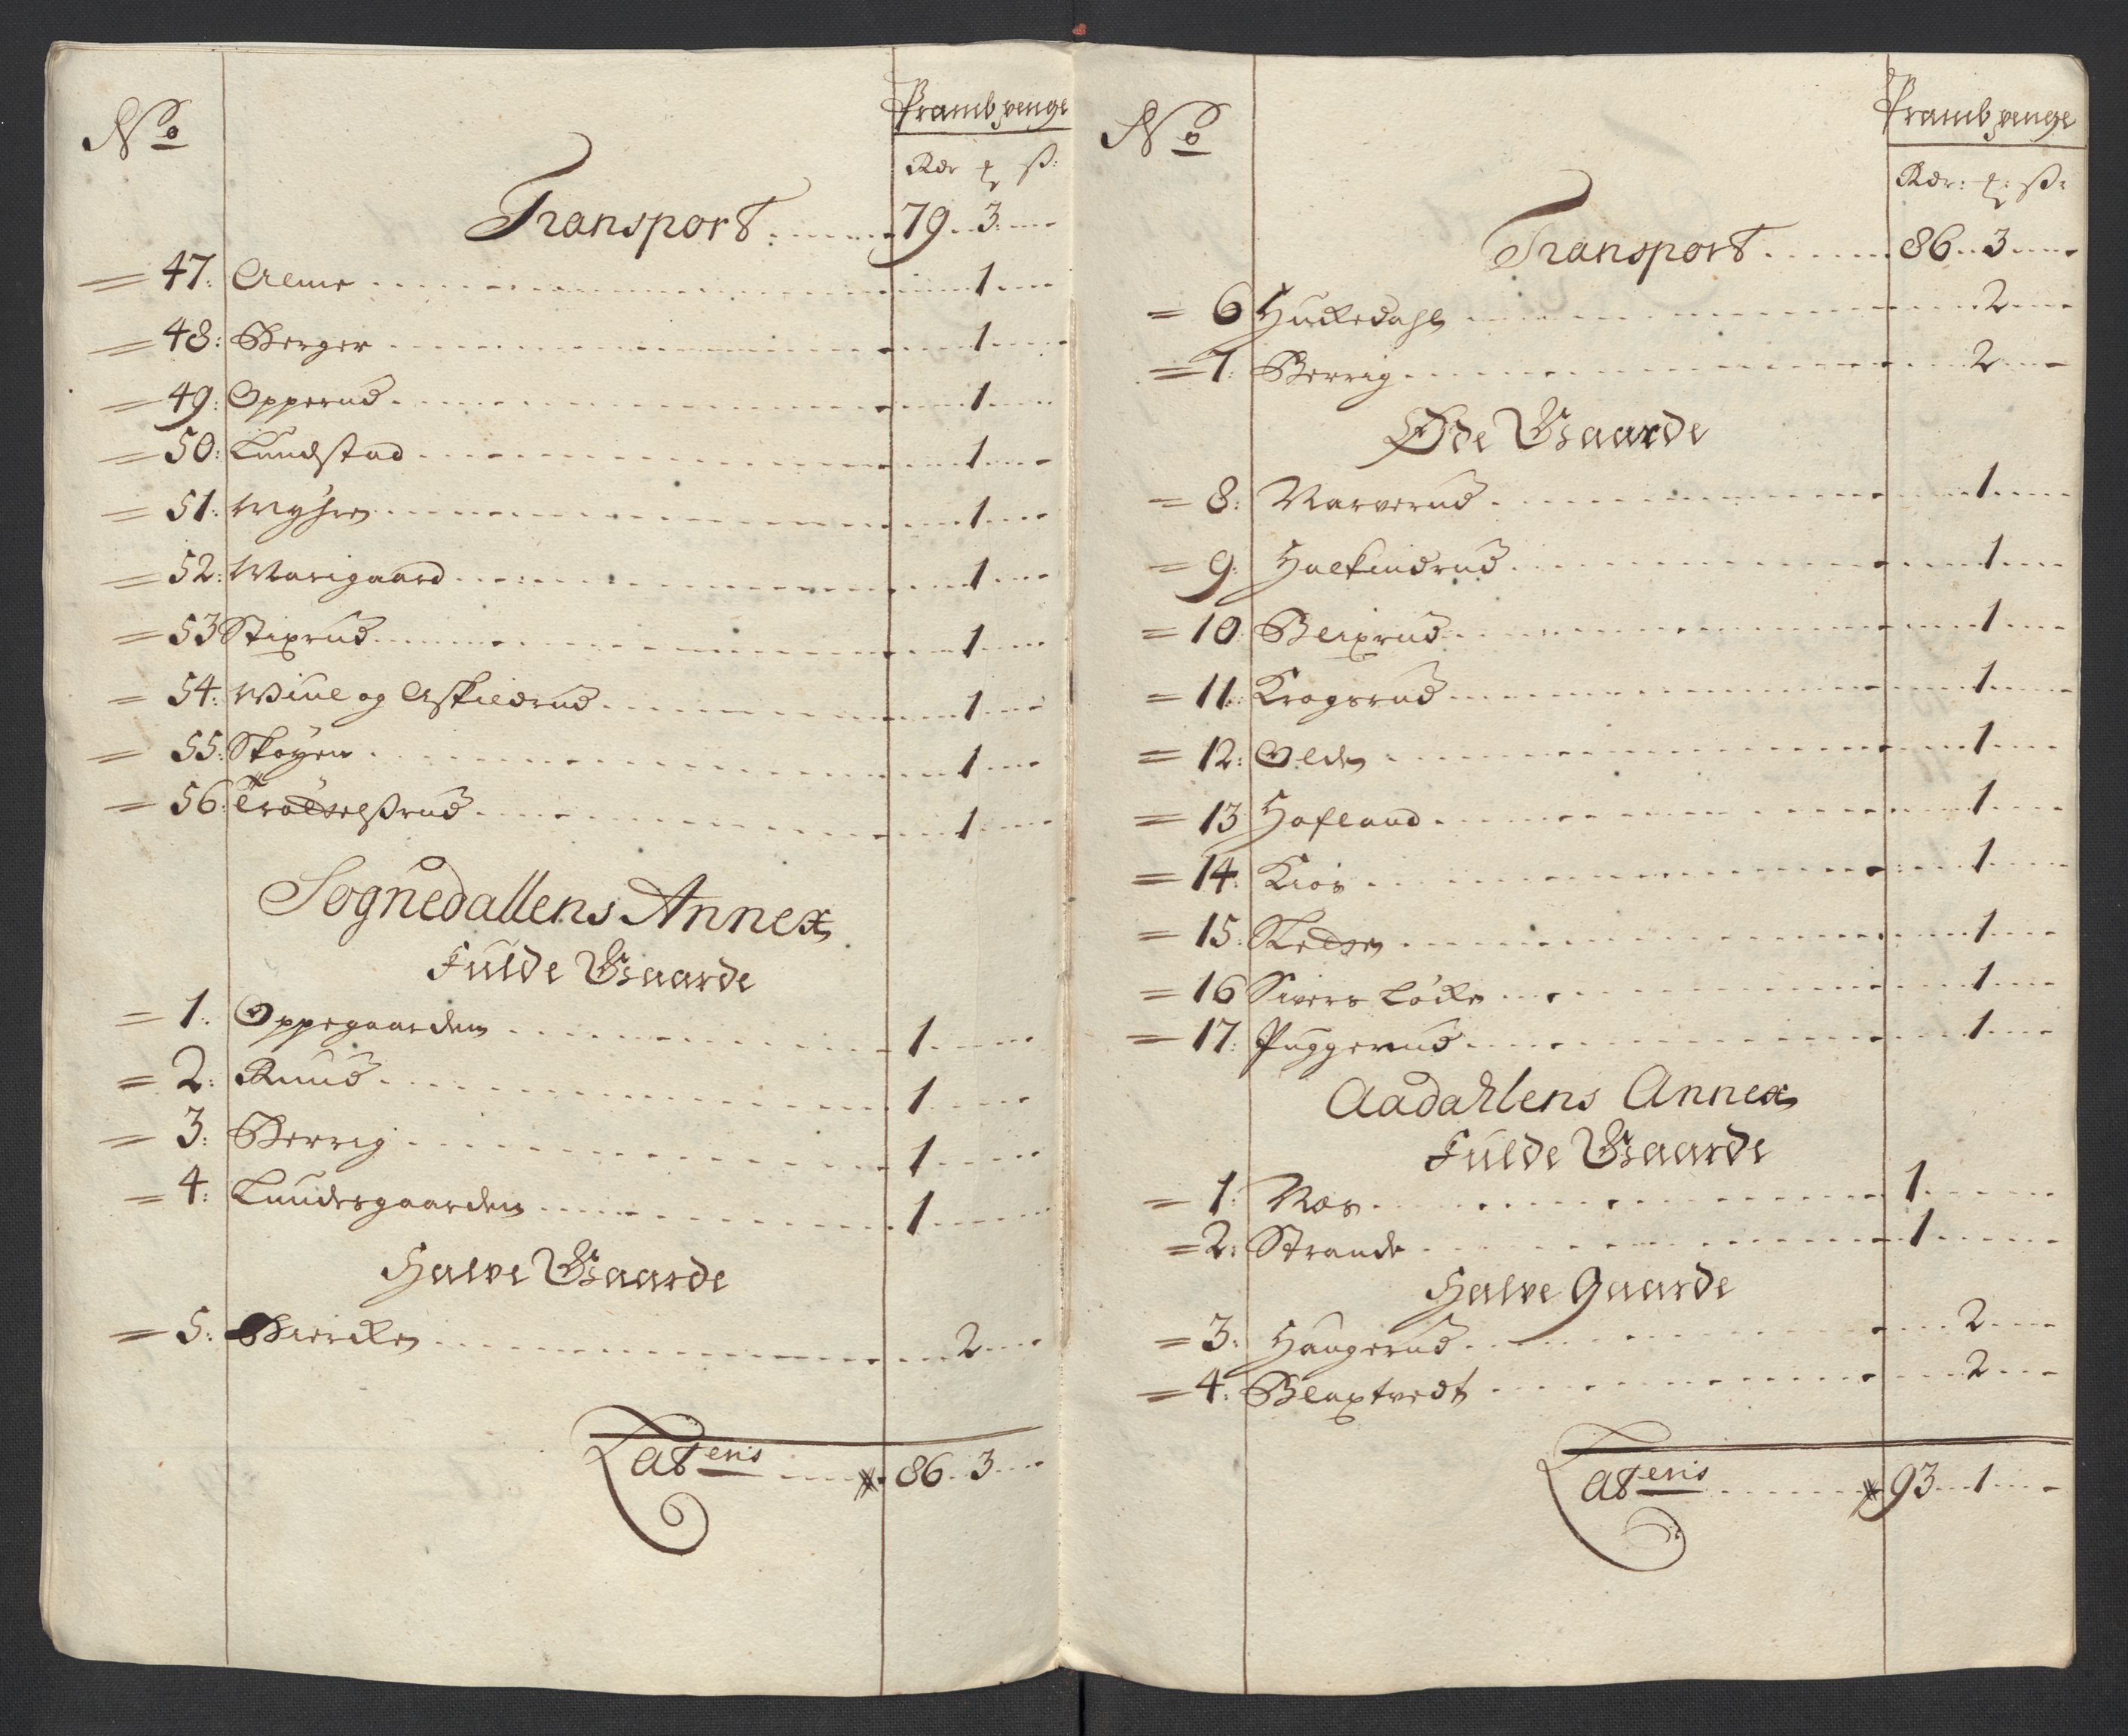 No
Prambpenge
Rdr ₰ ß:
Transport 79 3
= 47: Alme 1
= 48: Berger 1
= 49: Opperud 1
= 50: Lundstad 1
= 51: Myhren 1
= 52: Marigaard 1
= 53 Stixrud 1
= 54: Wiul og Askildrud 1
= 55: Skøyen 1
= 56: Trolselsrud 1
Sognedallens Annex
Fulde Gaarde
= 1: Oppegaarden 1
= 2: Ruud 1
= 3: Berrig 1
= 4: Lundesgaarden 1
Halve Gaarde
= 5: Biercken 2
Lateris 86 3
No
Prambpenge
Rdr: ₰: ß:
Transport 86 3
= 6 Huckedahl 2
= 7: Berrig 2
Øde Gaarde
= 8: Narverud 1
= 9: Halkindrud 1
= 10: Beixrud 1
= 11: Krogsrud 1
= 12: Olden 1
= 13 Hafland 1
= 14: Kiøs 1
= 15: 1
= 16 Sivers Løcke 1
= 17: Puggerud 1
Aadahlens Annex
Fulde Gaarde
= 1: Næs 1
= 2: Strande 1
Halve Gaarde
= 3: Haugerud 2
= 4: Blaxtvedt 2
Lateris 93 1